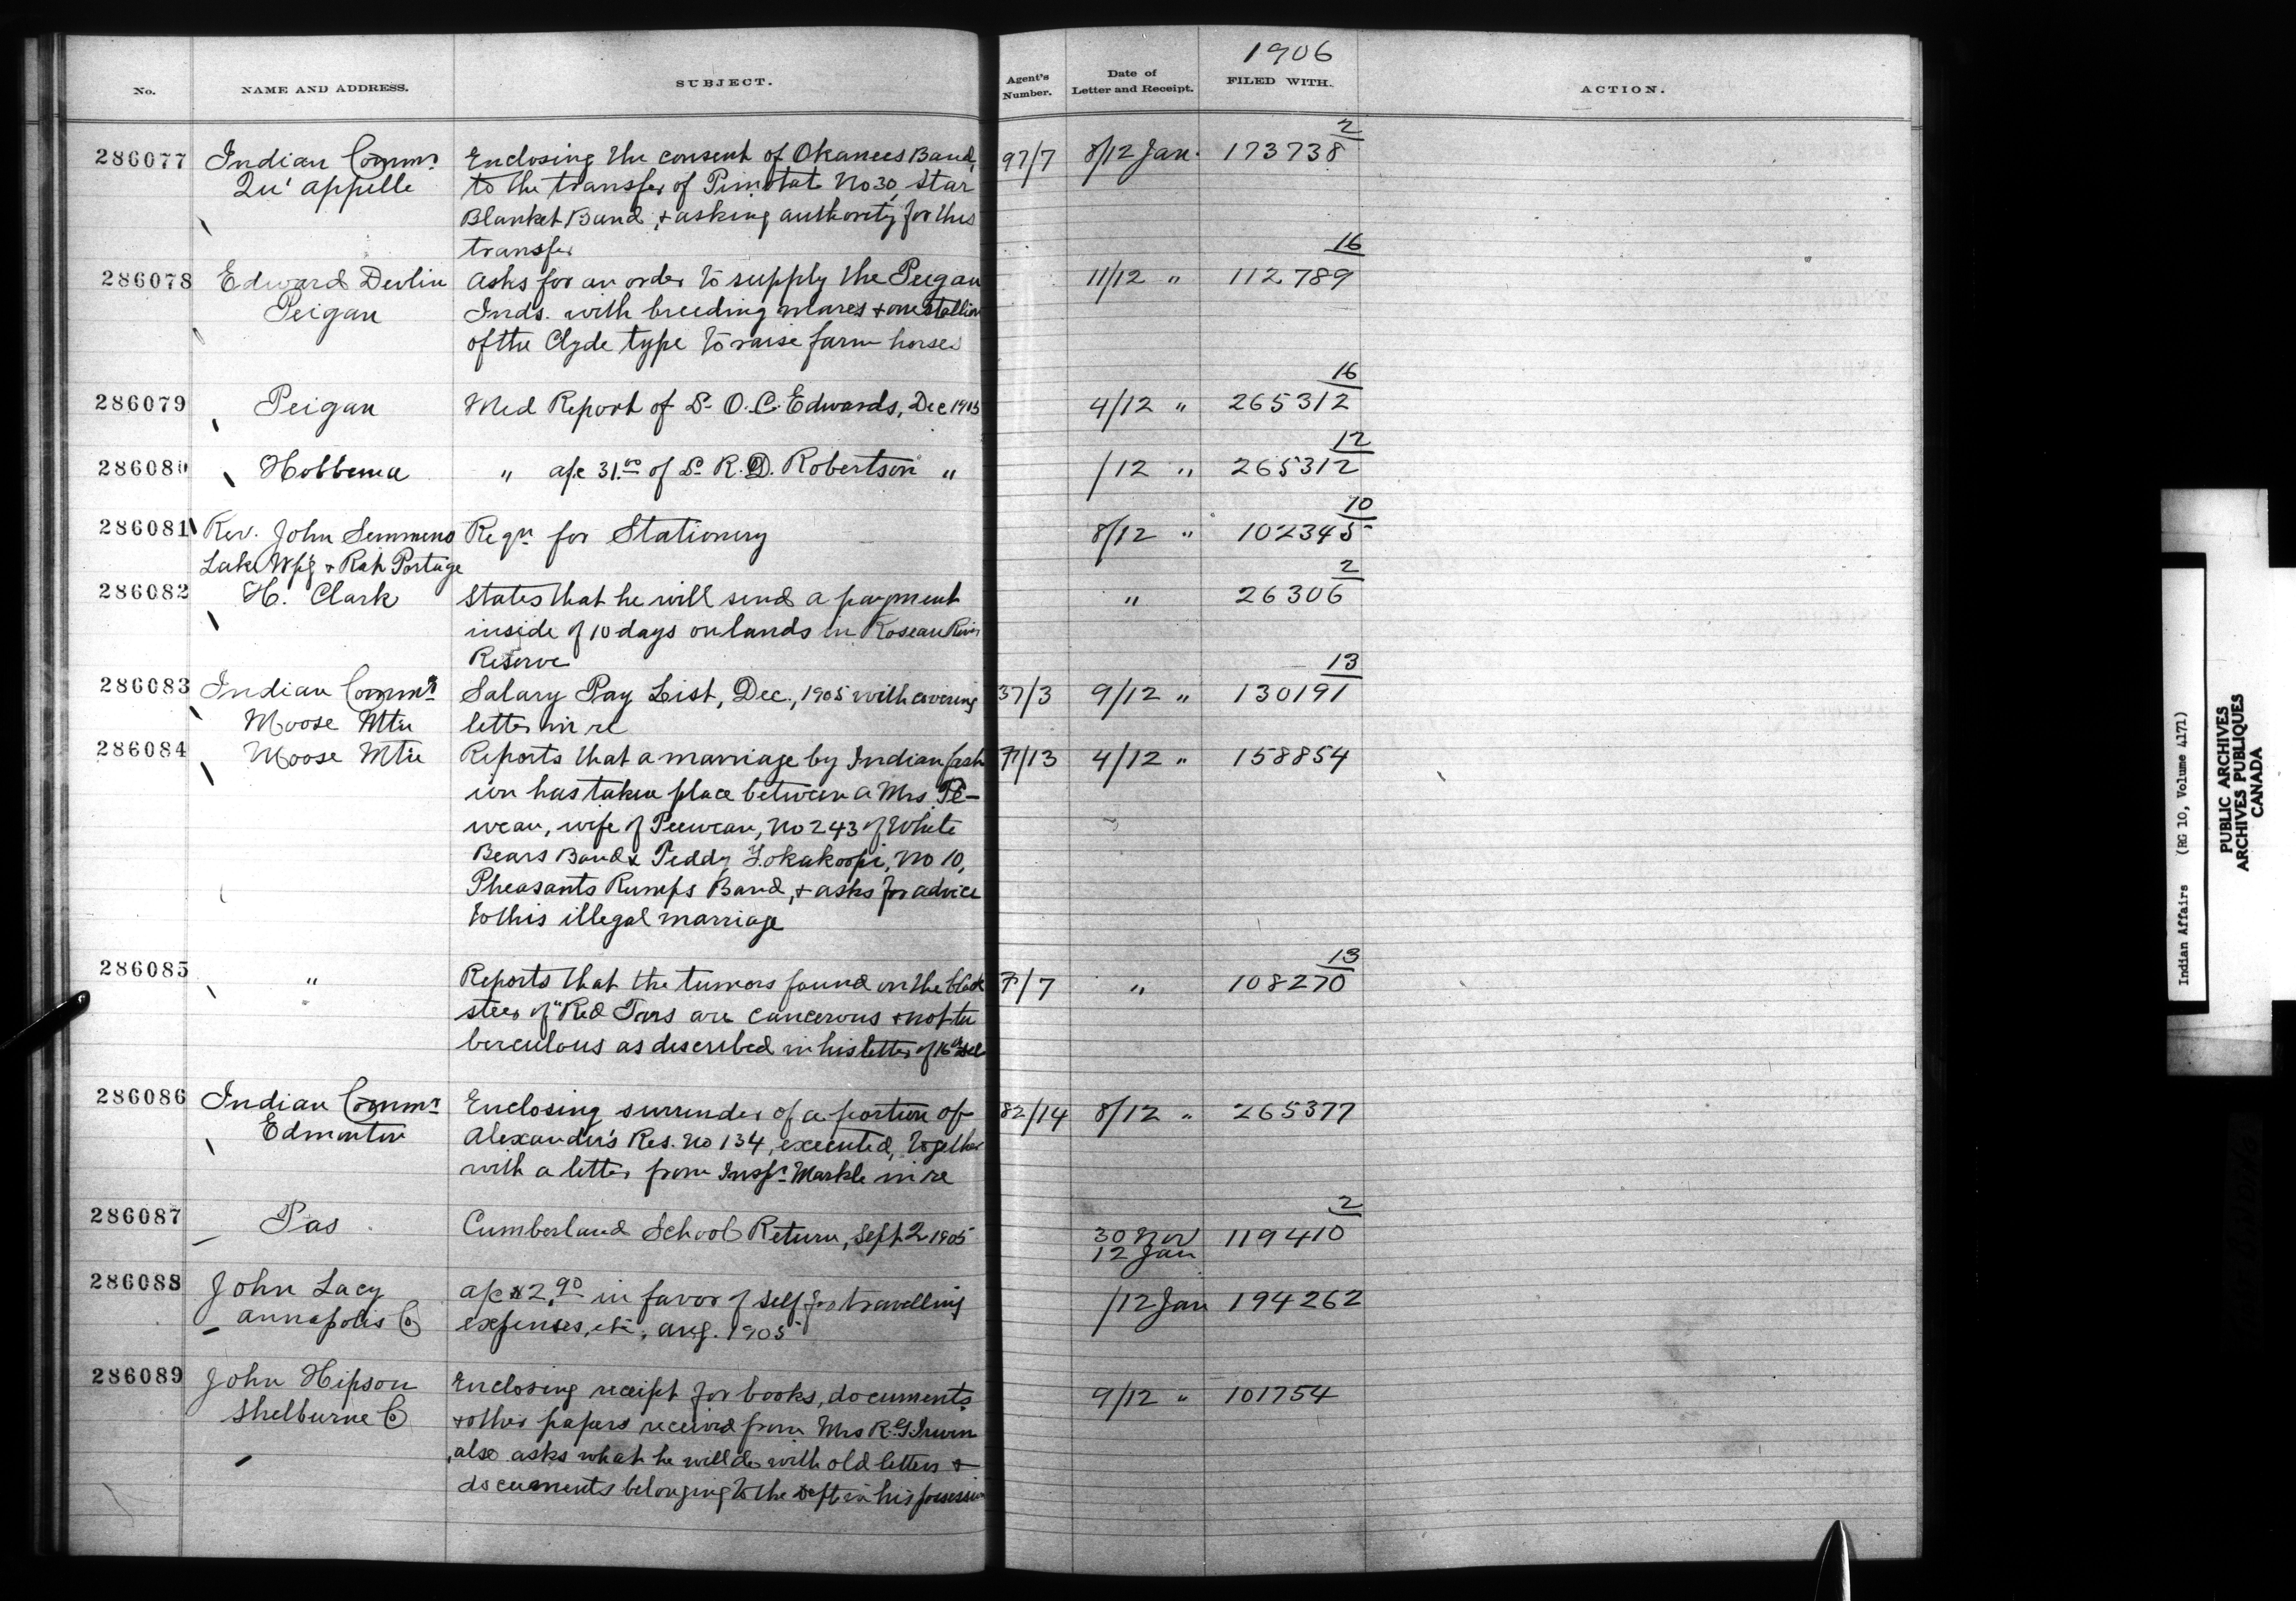 1906
No. NAME AND ADDRESS. SUBJECT. Agent's Number. Date of Letter and Receipt. FILED WITH. ACTION.
2
286077 Indian Commr Enclosing the consent of Okanees Band, 97/7 8/12 Jan. 173738
Qu'appelle to the transfer of No 30, Star
Blanket Band, & asking authority for this
transfer
16
286078 Edward Devlin Asks for an order to supply the Peigan 11/12 " 112789
Peigan Inds. with breeding mares & one stallion
of the Clyde type to raise farm horses
16
286079 Peigan Med Report of Dr O.C. Edwards, Dec 1905 4/12 " 265312
12
286080 Hobbema " a/c 31.00 of Dr R.D. Robertson " /12 " 265312
10
286081 Rev. John Semmens Reqn for Stationery 8/12 " 102345
Lake Wpg & Rat Portage
2
286082 H. Clark States that he will send a payment " 26306
inside of 10 days on lands in Roseau River
Reserve
13
286083 Indian Commr Salary Pay List, Dec., 1905 with covering 37/3 9/12 " 130191
Moose Mtn letter in re
286084 Moose Mtn Reports that a marriage by Indian fash /13 4/12 " 158854
ion has taken place between a Mrs. Pe-
wean, wife of Peewean, No 243 of White
Bears Band & Teddy No 10,
Pheasants Rumps Band, & asks for advice
to this illegal marriage
13
286085 " Reports that the tumors found on the black /7 " 108270
steer of "Red Ears are cancerous & not tu
berculous as described in his letter of 16th
286086 Indian Commr Enclosing surrender of a portion of 82/14 8/12 " 265377
Edmonton Alexander's Res. No 134, executed, together
with a letter from Inspr Markle in re
2
286087 Pas Cumberland School Return, Sept 2 1905 30 Nov 119410
12 Jan
286088 John Lacy a/c $2.90 in favor of self for travelling /12 Jan 194262
Annapolis Co expenses, etc., Aug. 1905
286089 John Hipson Enclosing receipt for books, documents 9/12 " 101754
Shelburne Co & other papers received from Mrs R.G. Irwin
also asks what he will do with old letters &
documents belonging to the Dept in his possession
Indian Affairs (RG 10, Volume 4171)
PUBLIC ARCHIVES
ARCHIVES PUBLIQUES
CANADA